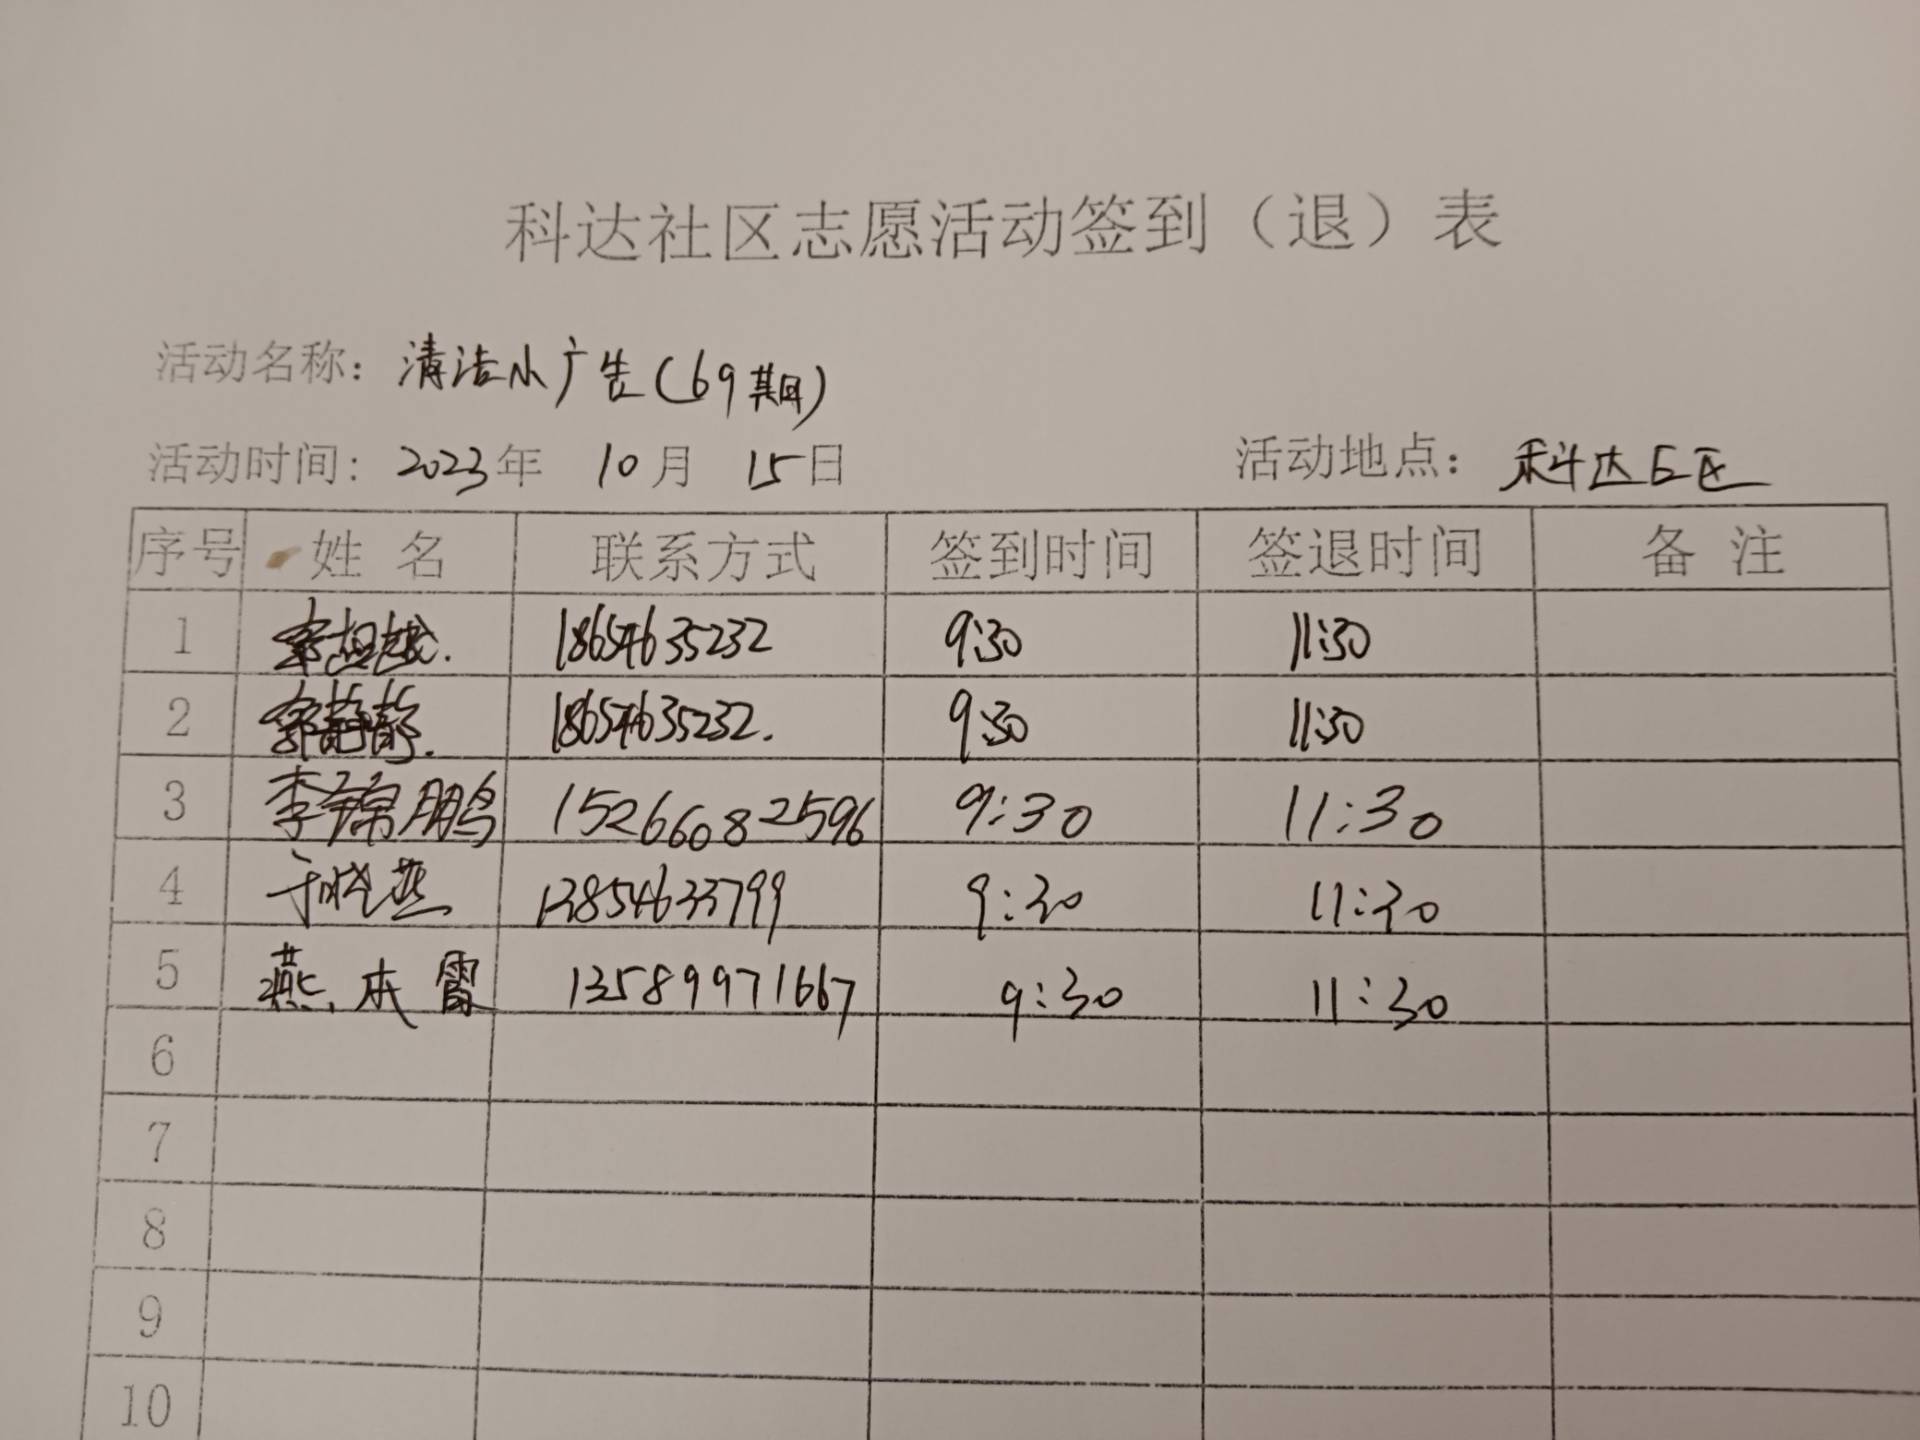 科达社区志愿活动签到（退）表
活动名称：清洁小广告(69期)
活动时间：2023年 10月 15日 活动地点：科达E区
序号 姓 名 联系方式 签到时间 签退时间 备 注
1 18654635232 9:30 11:30
2 静静. 18654635232. 9:30 11:30
3 李锦鹏 15266082596 9:30 11:30
4 于晓燕 13854633799 9:30 11:30
5 燕本雷 13589971667 9:30 11:30
6
7
8
9
10